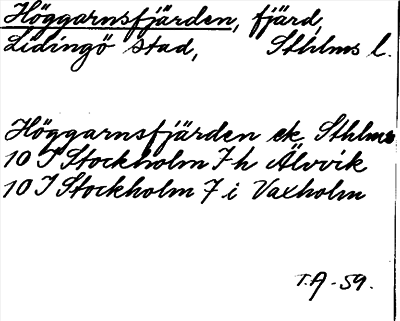 Höggarnsfjärden, fjärd,
Lidingö stad, Sthlms l.
Höggarnsfjärden ek Sthlms
10 I Stockholm 7 h Älvvik
10 I Stockholm 7 i Vaxholm
T.A-59.